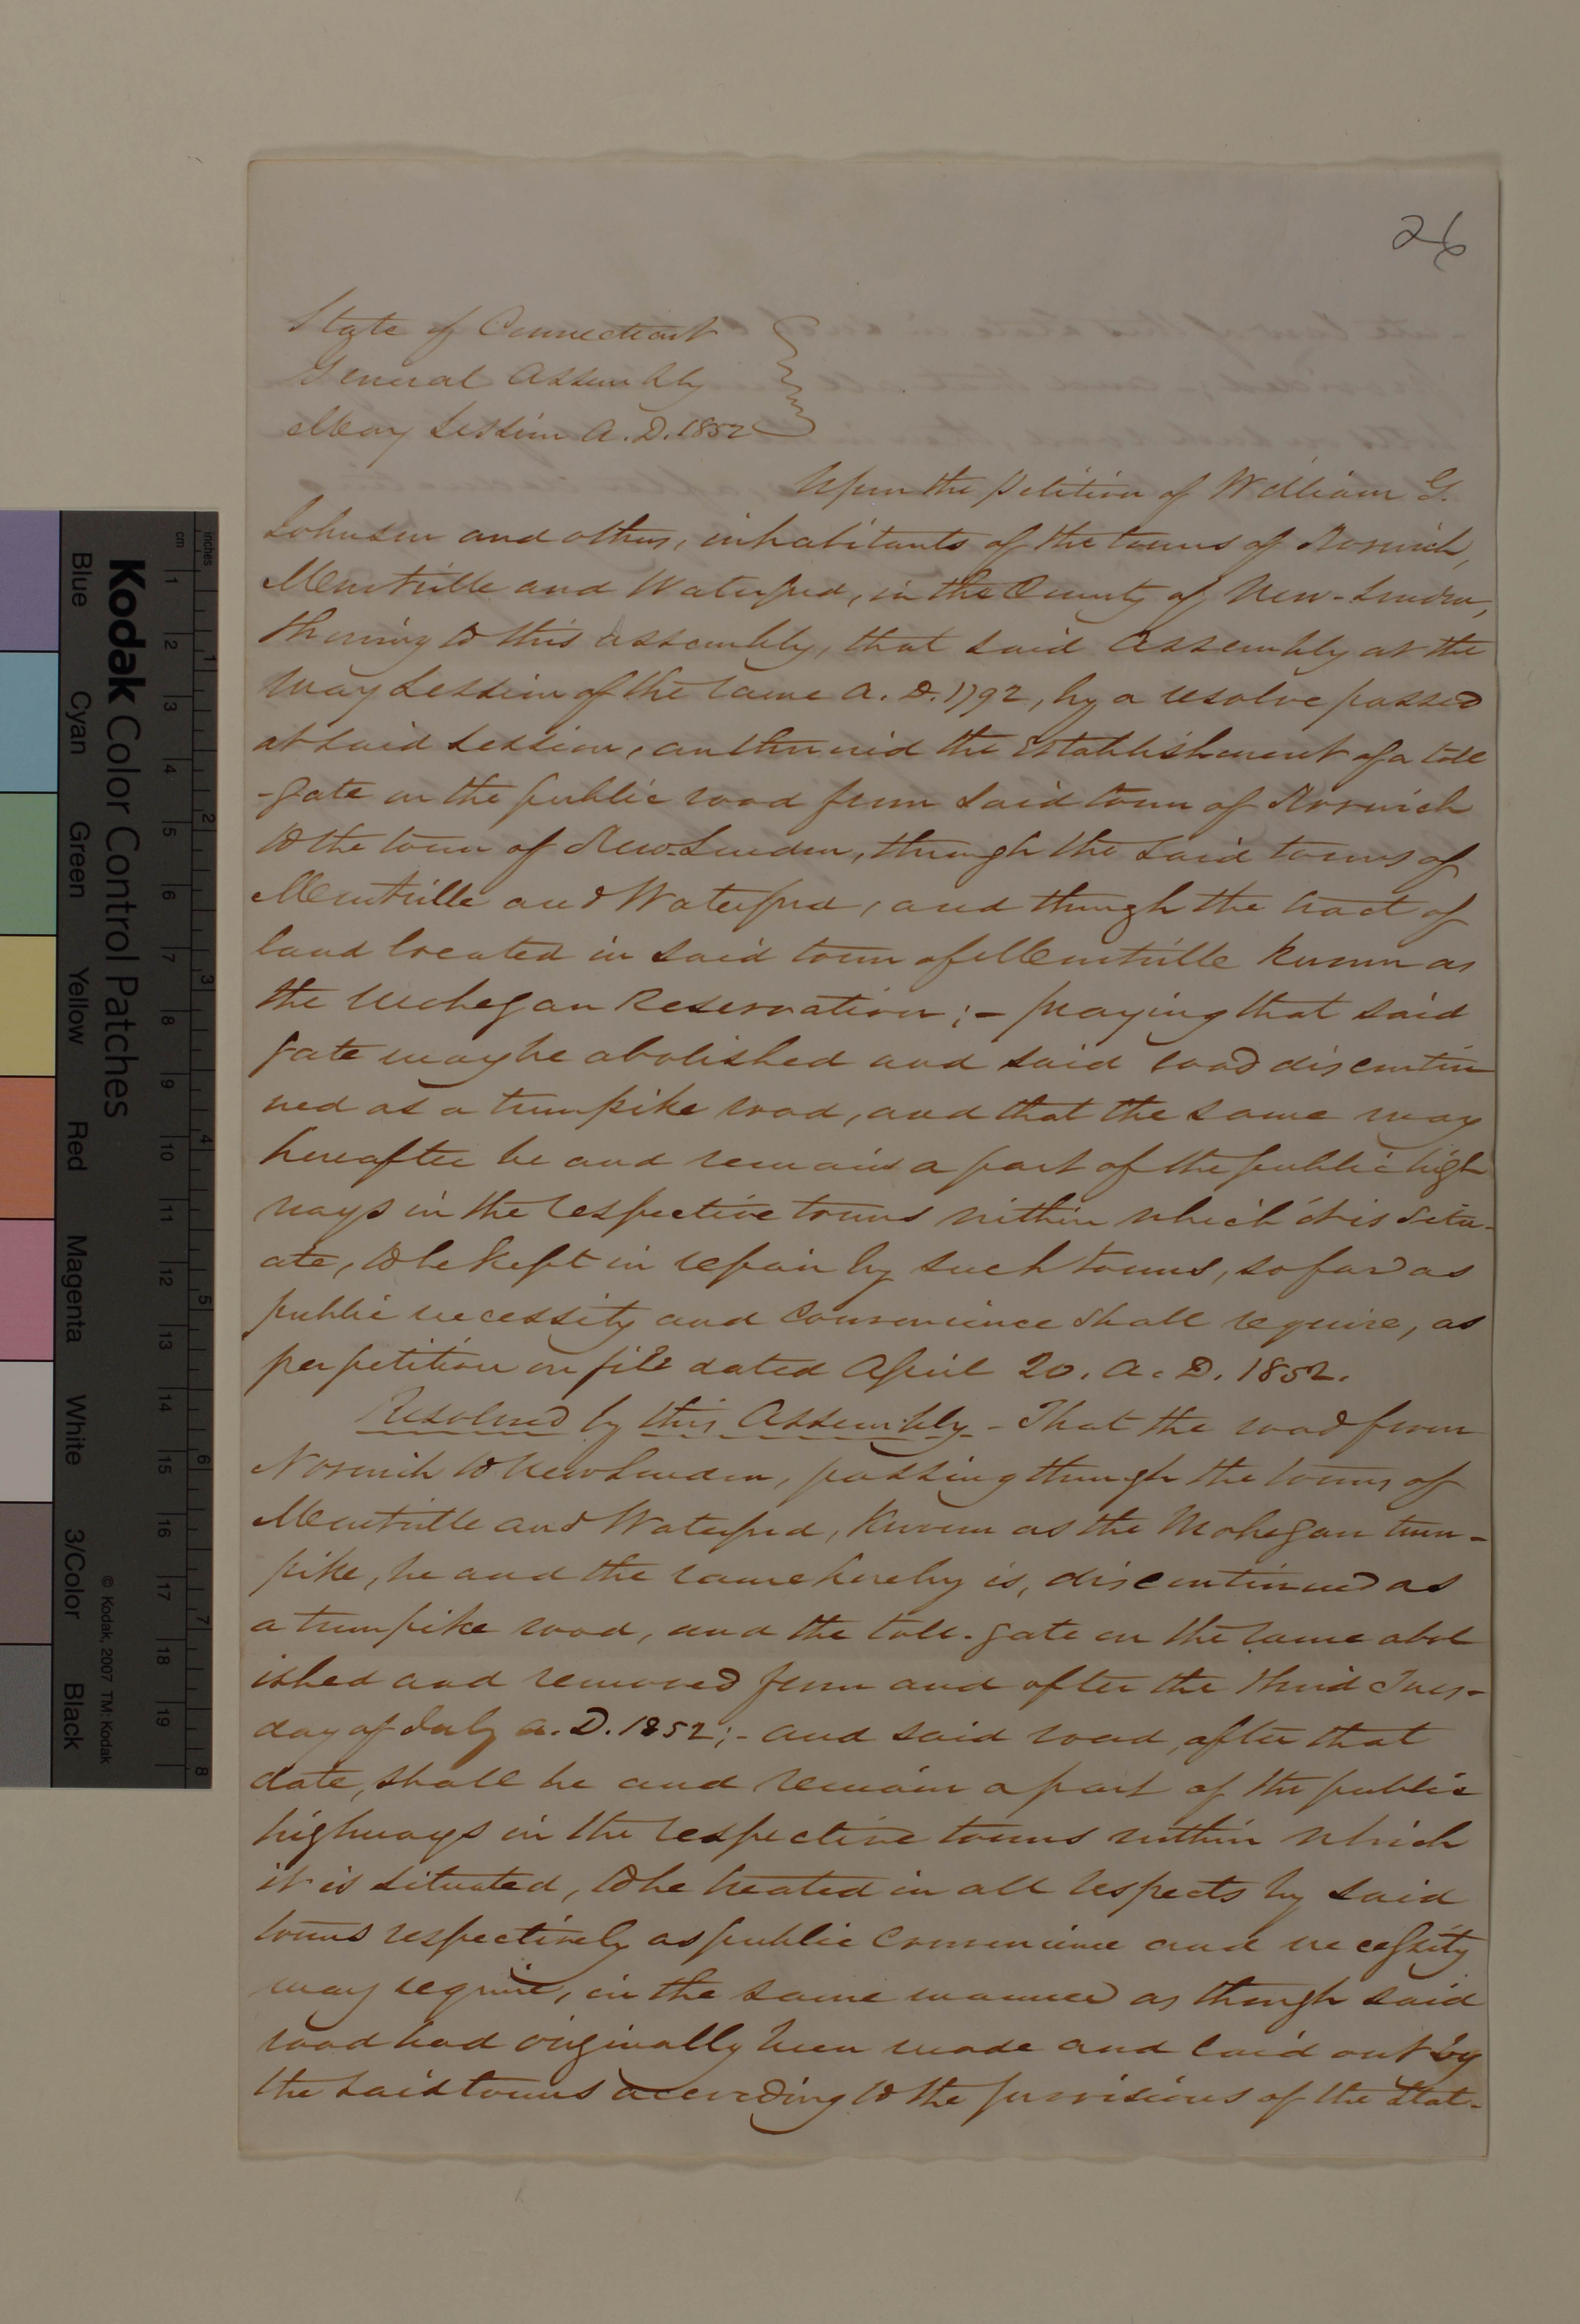 26
State of Connecticut
General Assembly
May Session A.D. 1852
Upon the petition of William G.
Johnson and others, inhabitants of the towns of Norwich,
Montville and Waterford, in the County of New-London,
showing to this Assembly, that said Assembly at the
May Session of the same A.D. 1792, by a resolve passed
at said session, authorized the establishment of a toll
-gate on the public road from said town of Norwich
to the town of New-London, through the said towns of
Montville and Waterford, and through the tract of
land located in said town of Montville known as
the Mohegan Reservation;- praying that said
gate may be abolished and said road discontin
ued as a turnpike road, and that the same may
hereafter be and remain a part of the public high
ways in the respective towns within which it is situ-
ate, to be kept in repair by such towns, so far as
public necessity and convenience shall require, as
per petition on file dated April 20. A.D. 1852.
Resolved by this Assembly - That the road from
Norwich to New London, passing through the towns of
Montville and Waterford, known as the Mohegan turn-
pike, be and the same hereby is, discontinued as
a turnpike road, and the toll-gate on the same abol
ished and removed from and after the third Tues-
day of July A.D. 1852;- and said road, after that
date, shall be and remain a part of the public
highways in the respective towns within which
it is situated, to be treated in all respects by said
towns respectively as public convenience and necessity
may require, in the same manner as though said
road had originally been made and laid out by
the said towns according to the provisions of the stat-
Kodak Color Control Patches
Blue Cyan Green Yellow Red Magenta White 3/Color Black
© Kodak, 2007 TM: Kodak
inches 1 2 3 4 5 6 7 8
cm 1 2 3 4 5 6 7 8 9 10 11 12 13 14 15 16 17 18 19